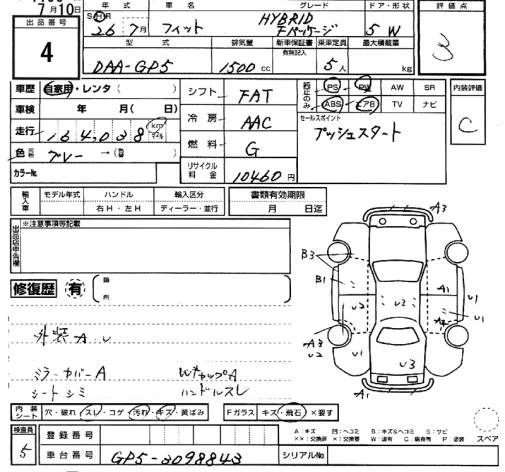 7月10日
年式 車名 グレード ドア・形状 評価点
出品番号
4
26年 7月 フィット HYBRID Fパッケージ 5 W
3
型式 排気量 新車保証書 有関記入 乗車定員 最大積載量
DAA-GP5 1500cc 5人 kg
車歴 自家用・レンタ( )
車検 年 月( 日)
走行 164,038 km
色 グレー → (替 )
カラーNo.
シフト FAT
冷房 AAC
燃料 G
リサイクル料金 10460円
純正のみ PS PW AW SR
ABS エアB TV ナビ
内装評価
C
セールスポイント
プッシュスタート
輸入車 モデル年式 ハンドル 輸入区分 書類有効期限
右H・左H ディーラー・並行 月 日迄
出品店申告欄 ※注意事項等記載
修復歴 有 箇所
外装 A U
ミラーカバーA WキャップA
シートシミ ハンドルスレ
A3
B3
B1
U2
A3
U2
U1
U2
A1
A2
U1
U1
U3
内装シート 穴・破れ スレ・コゲ 汚れ・キズ・黄ばみ Fガラス キズ・飛石 ×要す
検査員 5
登録番号
車台番号 GP5-3098843 シリアルNo.
A:キズ U:ヘコミ B:キズ&ヘコミ S:サビ
××:交換済 ×:交換要 W:波有 C:腐蝕有 P:塗装
スペア